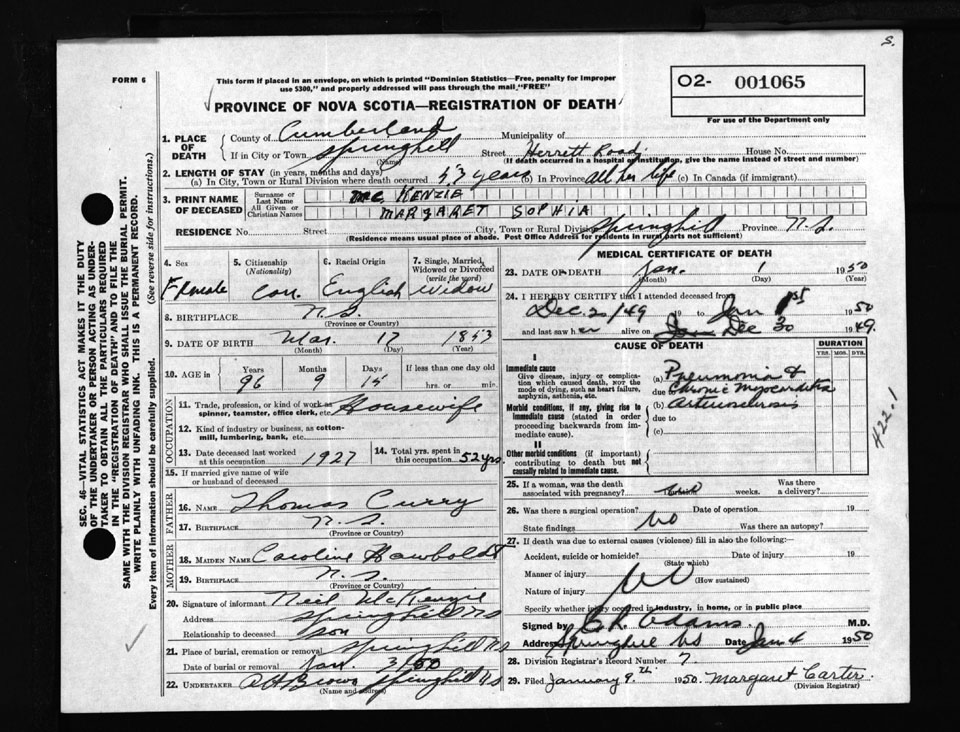 S.
FORM 6
This form if placed in an envelope, on which is printed "Dominion Statistics—Free, penalty for improper
use $300," and properly addressed will pass through the mail "FREE"
PROVINCE OF NOVA SCOTIA—REGISTRATION OF DEATH
O2- 001065
For use of the Department only
SEC. 46—VITAL STATISTICS ACT MAKES IT THE DUTY
OF THE UNDERTAKER OR PERSON ACTING AS UNDER-
TAKER TO OBTAIN ALL THE PARTICULARS REQUIRED
IN THE "REGISTRATION OF DEATH" AND TO FILE THE
SAME WITH THE DIVISION REGISTRAR WHO SHALL ISSUE THE BURIAL PERMIT.
WRITE PLAINLY WITH UNFADING INK. THIS IS A PERMANENT RECORD.
Every item of information should be carefully supplied. (See reverse side for instructions.)
1. PLACE OF DEATH
County of Cumberland Municipality of
If in City or Town Springhill Street Herrett Road House No.
(Name) (If death occurred in a hospital or institution, give the name instead of street and number)
2. LENGTH OF STAY (in years, months and days)
(a) In City, Town or Rural Division where death occurred 53 years (b) In Province all her life (c) In Canada (if immigrant)
3. PRINT NAME OF DECEASED
Surname or Last Name Mc KENZIE
All Given or Christian Names MARGARET SOPHIA
RESIDENCE No. Street City, Town or Rural Division Springhill Province N.S.
(Residence means usual place of abode. Post Office Address for residents in rural parts not sufficient)
4. Sex Female
5. Citizenship (Nationality) Can.
6. Racial Origin English
7. Single, Married, Widowed or Divorced (write the word) Widow
8. BIRTHPLACE N.S.
(Province or Country)
9. DATE OF BIRTH Mar. 17 1853
(Month) (Day) (Year)
10. AGE in Years 96 Months 9 Days 15 If less than one day old hrs. or min.
OCCUPATION
11. Trade, profession or kind of work as spinner, teamster, office clerk, etc. Housewife
12. Kind of industry or business, as cotton-mill, lumbering, bank, etc.
13. Date deceased last worked at this occupation 1927
14. Total yrs. spent in this occupation 52 yrs.
15. If married give name of wife or husband of deceased
FATHER
16. NAME Thomas Curry
17. BIRTHPLACE N.S.
(Province or Country)
MOTHER
18. MAIDEN NAME Caroline Hawboldt
19. BIRTHPLACE N.S.
(Province or Country)
20. Signature of informant Neil McKenzie
Address Springhill NS
Relationship to deceased son
21. Place of burial, cremation or removal Springhill NS
Date of burial or removal Jan. 3/50
22. UNDERTAKER A H Brown Springhill NS
(Name and address)
MEDICAL CERTIFICATE OF DEATH
23. DATE OF DEATH Jan. 1 1950
(Month) (Day)
24. I HEREBY CERTIFY that I attended deceased from
Dec. 20/49 19 to Jan 1st 1950
and last saw her alive on Dec 30 1949.
CAUSE OF DEATH
DURATION
YRS. MOS. DYS.
I
Immediate cause
Give disease, injury or complication which caused death, NOT the mode of dying, such as heart failure, asphyxia, asthenia, etc.
(a) Pneumonia &
due to Chronic Myocarditis
Morbid conditions, if any, giving rise to immediate cause (stated in order proceeding backwards from immediate cause).
(b) Arteriosclerosis
due to
(c)
II
Other morbid conditions (if important) contributing to death but not causally related to immediate cause.
422.1
25. If a woman, was the death associated with pregnancy? weeks. Was there a delivery?
26. Was there a surgical operation? No Date of operation 19
State findings Was there an autopsy?
27. If death was due to external causes (violence) fill in also the following:—
Accident, suicide or homicide? Date of injury 19
(State which)
Manner of injury No
(How sustained)
Nature of injury
Specify whether injury occurred in industry, in home, or in public place
Signed by Adams M.D.
Address Springhill NS Date Jan 4 1950
28. Division Registrar's Record Number 7.
29. Filed January 9th 1950 Margaret Carter
(Division Registrar)